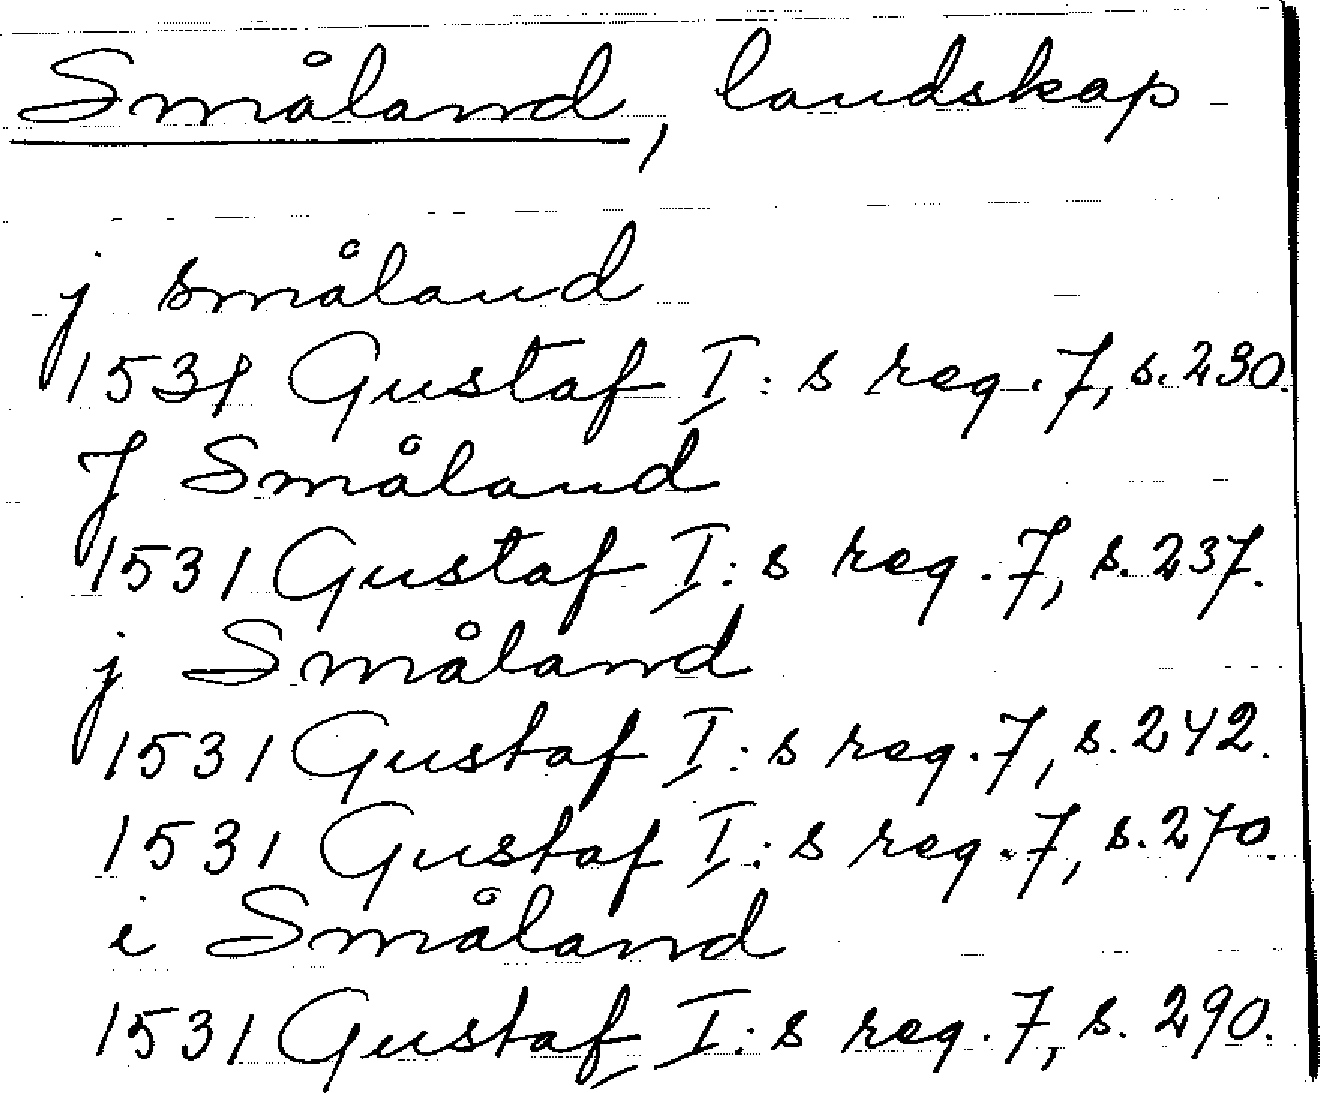 Småland, landskap
j småland
1531 Gustaf I:s reg. 7, s. 230.
J Småland
1531 Gustaf I:s reg. 7, s. 237.
j Småland
1531 Gustaf I:s reg. 7, s. 242.
1531 Gustaf I:s reg. 7, s. 270.
i Småland
1531 Gustaf I:s reg. 7, s. 290.